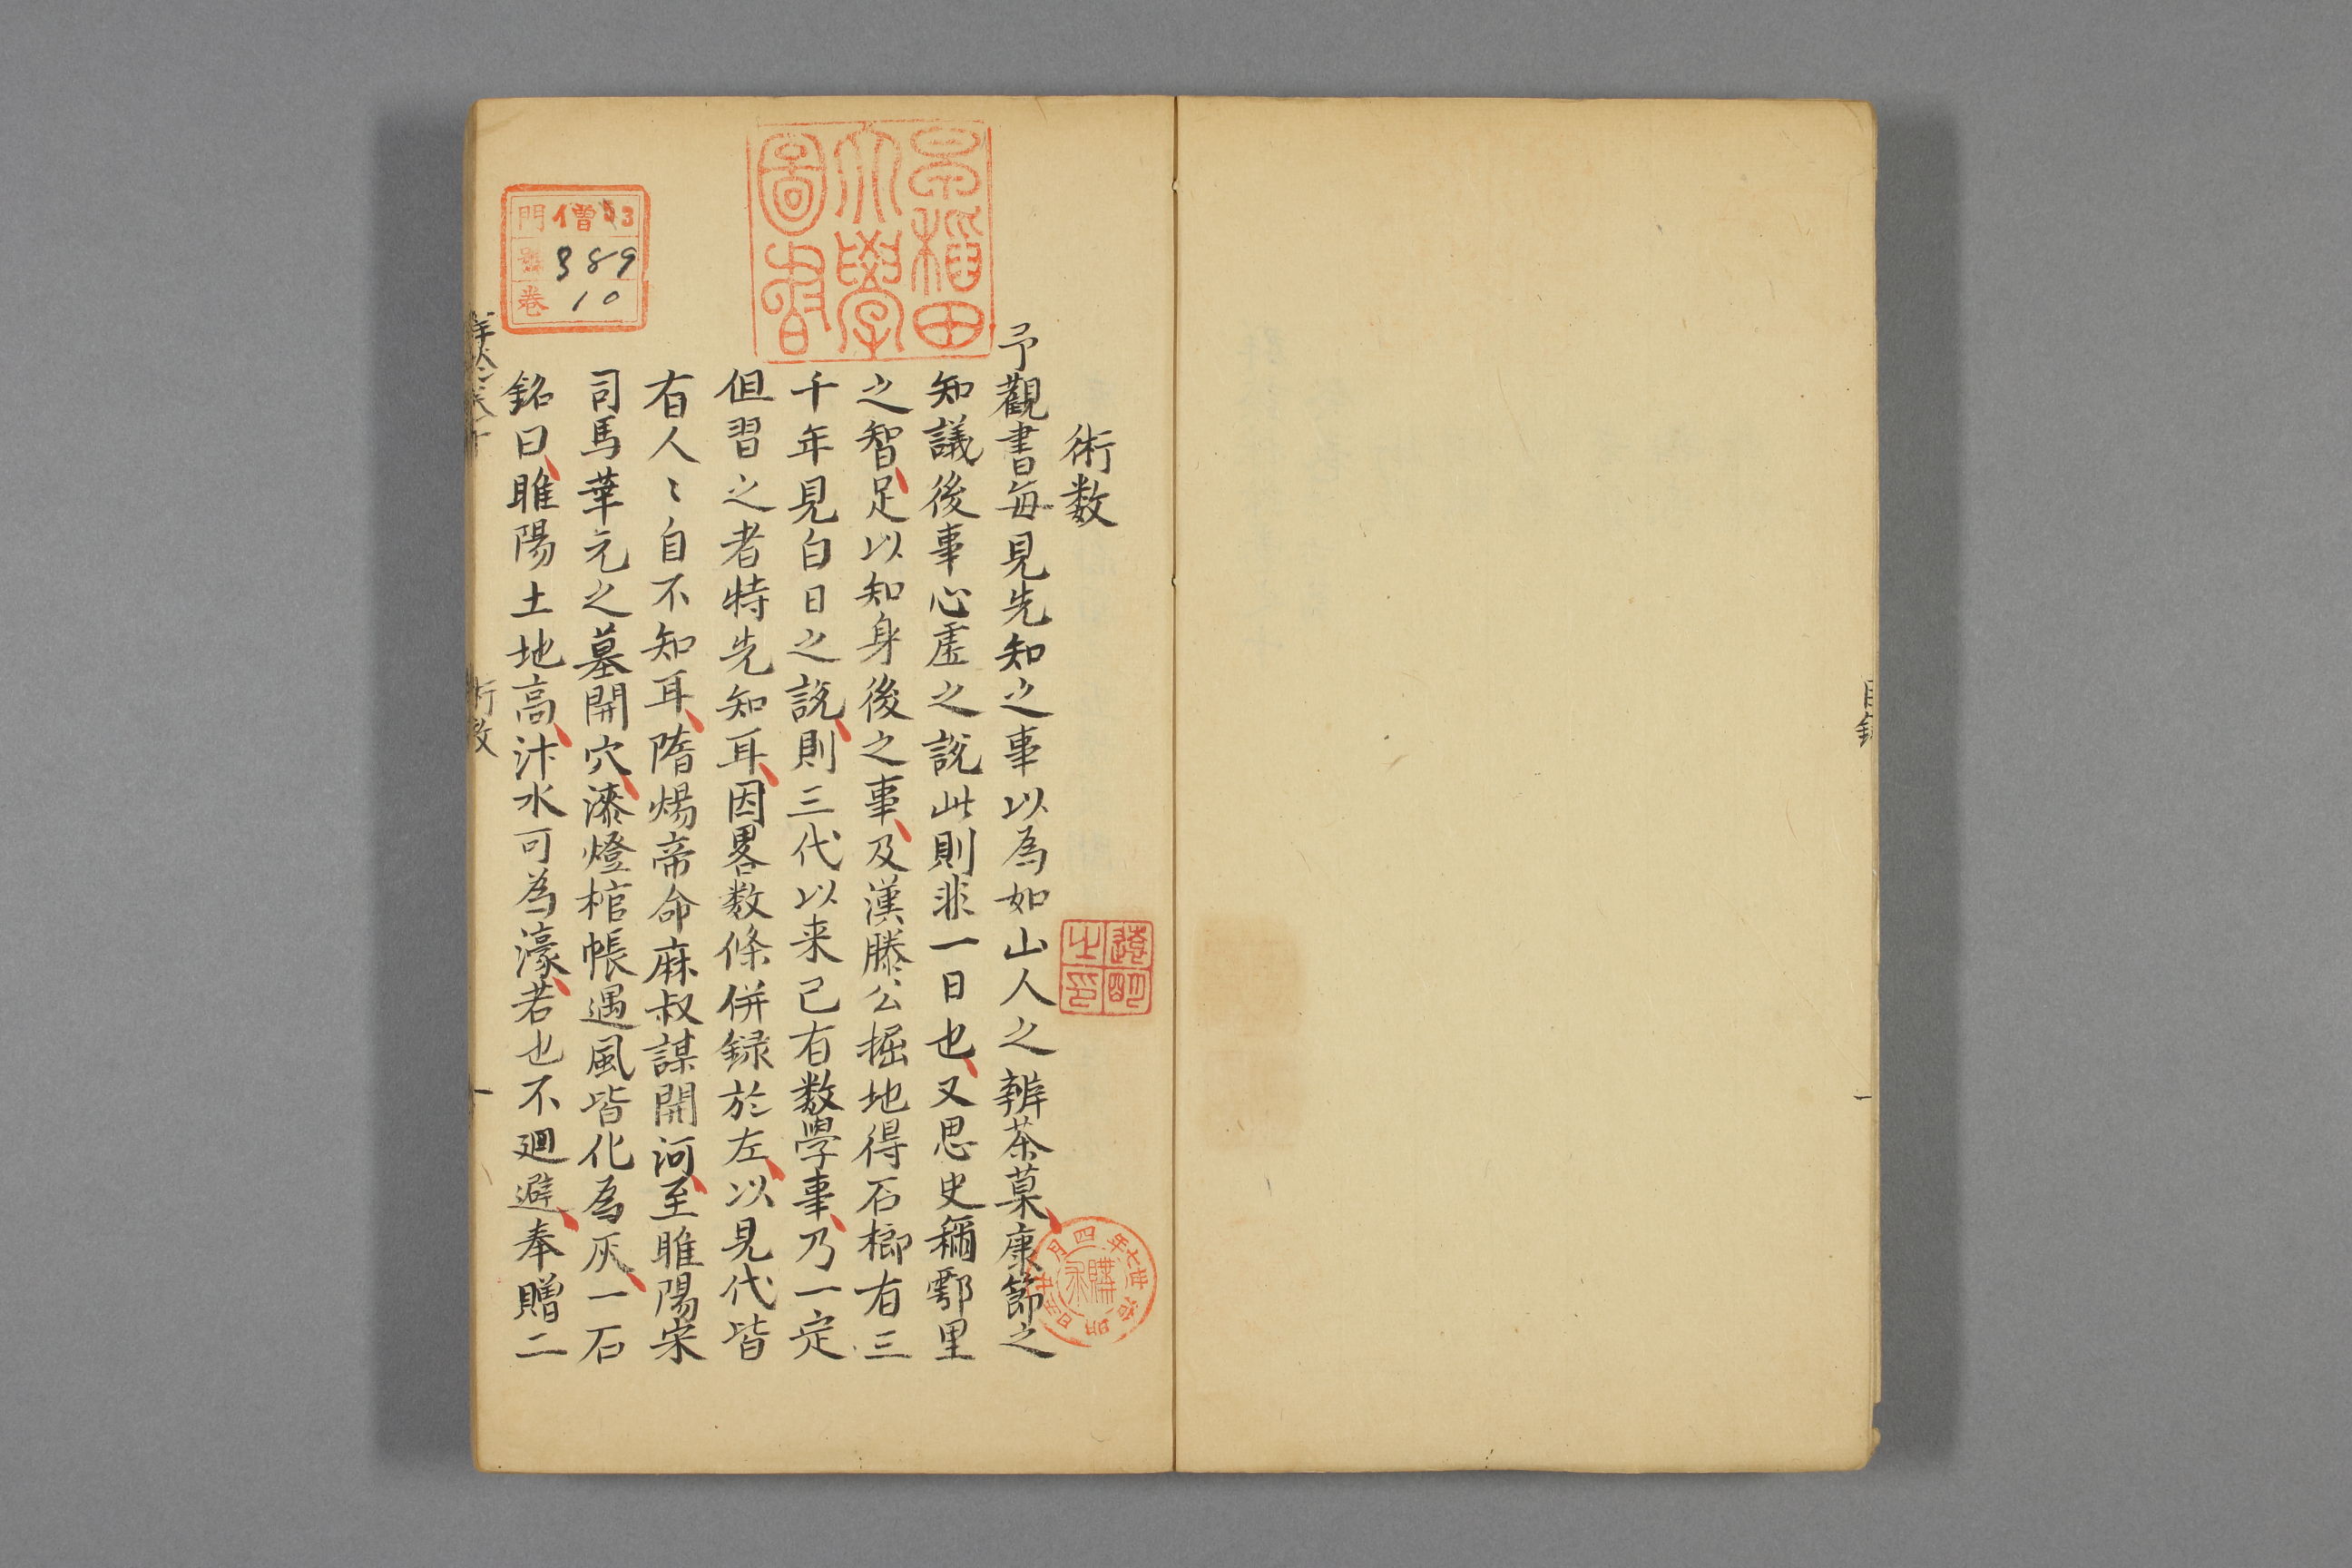 目録
一
術数
予觀書毎見先知之事以為如山人之辨茶菓康節之
知議後事心虛之説此則非一日也又思史稱鄠里
之智足以知身後之事及漢滕公掘地得石槨有三
千年見白日之説則三代以来已有数學事乃一定
但習之者特先知耳因畧数條併録於左以見代皆
有人〻自不知耳隋煬帝命麻叔謀開河至睢陽宋
司馬華元之墓開穴漆燈棺帳遇風皆化為灰一石
銘曰睢陽土地高汴水可為濠若也不廻避奉贈二
術数
一
早稲田
大學
圖書
門 僧53
號 389
卷 10
遠明
之印
明治卅七年四月廿五日
購求